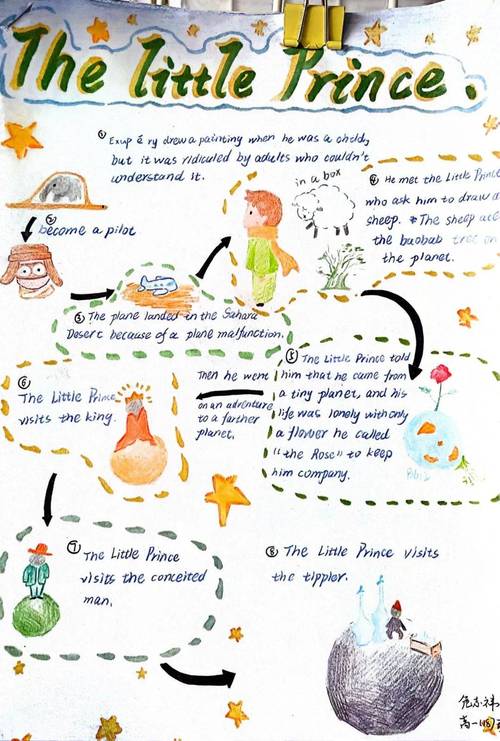 The Little Prince.
① Exup é ry drew a painting when he was a child,
but it was ridiculed by adults who couldn't
understand it.
② become a pilot
③ The plane landed in the Sahara
Desert because of a plane malfunction.
in a box
④ He met the Little Prince
who ask him to draw a
sheep. The sheep
the baobab tree on
the planet.
⑤ The Little Prince told
him that he came from
a tiny planet, and his
life was lonely with only
a flower he called
"the Rose" to keep
him company.
Then he went
on an adventure
to a farther
planet.
⑥
The Little Prince
visits the king.
⑦ The Little Prince
visits the conceited
man.
⑧ The Little Prince visits
the tippler.
高一